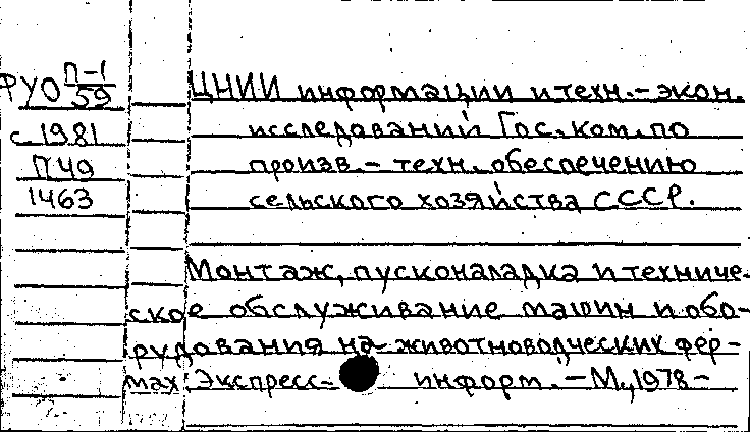 ФУО П-1/59
с 1981
П49
1463
ЦНИИ информации и техн.-экон.
исследований Гос. ком. по
произв.-техн. обеспечению
сельского хозяйства СССР.
Монтаж, пусконаладка и техниче-
ское обслуживание машин и обо-
рудования на животноводческих фер-
мах: Экспресс-информ. - М., 1978 -